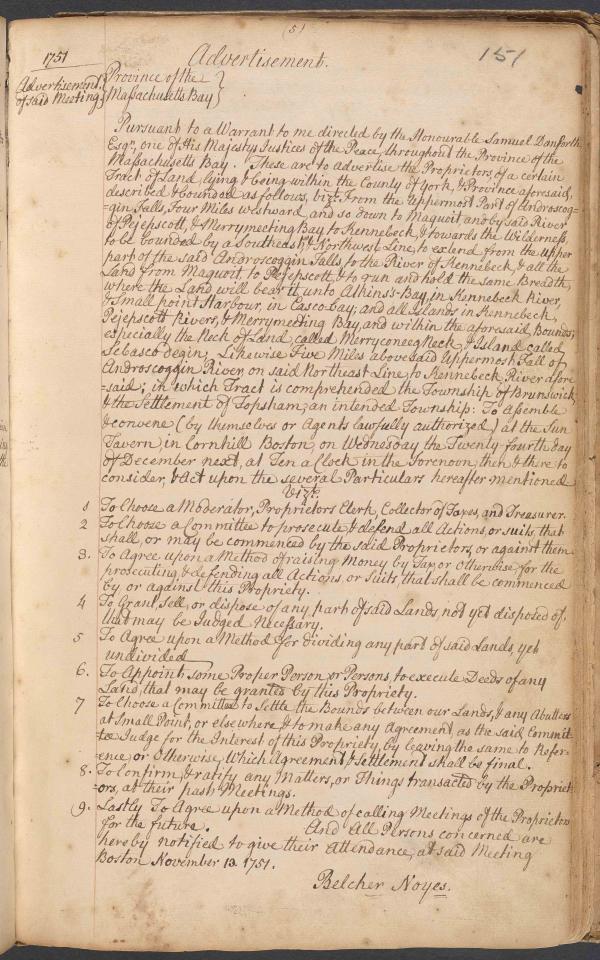 (5)
151
1751
Advertisement.
Advertisement
of said Meeting
Province of the
Massachusetts Bay
Pursuant to a Warrant to me directed by the Honourable Samuel Danforth
Esqr, one of His Majestys Justices of the Peace, throughout the Province of the
Massachusetts Bay. These are to advertise the Proprietors of a certain
Tract of Land, lying & being within the County of York, & Province aforesaid,
described & bounded as follows, vizt. From the Uppermost Part of Androscog=
=gin Falls, Four Miles westward, and so down to Maquoit and by said River
of Pejepscott, & Merrymeeting Bay to Kennebeck, & towards the Wilderness,
to be bounded by a Southeast, & Northwest Line, to extend from the upper
part of the said Androscoggin Falls, to the River of Kennebeck, & all the
Land from Maquoit to Pejepscott, & to run and hold the same Breadth,
where the Land will bear it unto Atkins's-Bay, in Kennebeck River,
& Small point Harbour, in Casco-bay, and all Islands in Kennebeck,
Pejepscott Rivers, & Merrymeeting Bay, and within the aforesaid Bounds;
especially the Neck of Land called Merryconeeg Neck, & Island called
Sebasco degin; Likewise Five Miles above said Uppermost Fall of
Androscoggin River, on said Northeast Line, to Kennebeck River afore
=said; in which Tract is comprehended the Township of Brunswick,
& the Settlement of Topsham, an intended Township: To Assemble
& convene (by themselves or Agents lawfully authorized) at the Sun
Tavern, in Cornhill Boston, on Wednesday the Twenty-fourth day
of December next, at Ten a Clock in the Forenoon, then & there to
consider, & Act upon the several Particulars hereafter mentioned
Vizt.
1 To Choose a Moderator, Proprietors Clerk, Collector of Taxes, and Treasurer.
2 To Choose a Committee to prosecute & defend all Actions, or suits, that
shall, or may be commenced by the said Proprietors, or against them
3. To Agree upon a Method of raising Money by Tax, or Otherwise, for the
prosecuting, & defending all Actions, or Suits, that shall be commenced
by or against this Propriety.
4 To Grant, Sell, or dispose of any part of said Lands, not yet disposed of,
that may be Judged Necessary.
5 To Agree upon a Method for dividing any part of said Lands, yet
undivided
6. To Appoint some Proper Person, or Persons, to execute Deeds of any
Land, that may be granted by this Propriety.
7 To Choose a Committee to Settle the Bounds between our Lands, & any Abutters
at Small Point, or elsewhere, & to make any Agreement, as the said Commit=
=tee Judge for the Interest of this Propriety, by leaving the same to Refer=
=ence, or Otherwise, Which Agreement & Settlement shall be final.
8. To Confirm, & ratify any Matters, or Things transacted by the Propriet=
=ors, at their past Meetings.
9. Lastly To Agree upon a Method of calling Meetings of the Proprietors
for the future. And All Persons concerned are
hereby notified to give their Attendance, at said Meeting
Boston November 19. 1751.
Belcher Noyes.